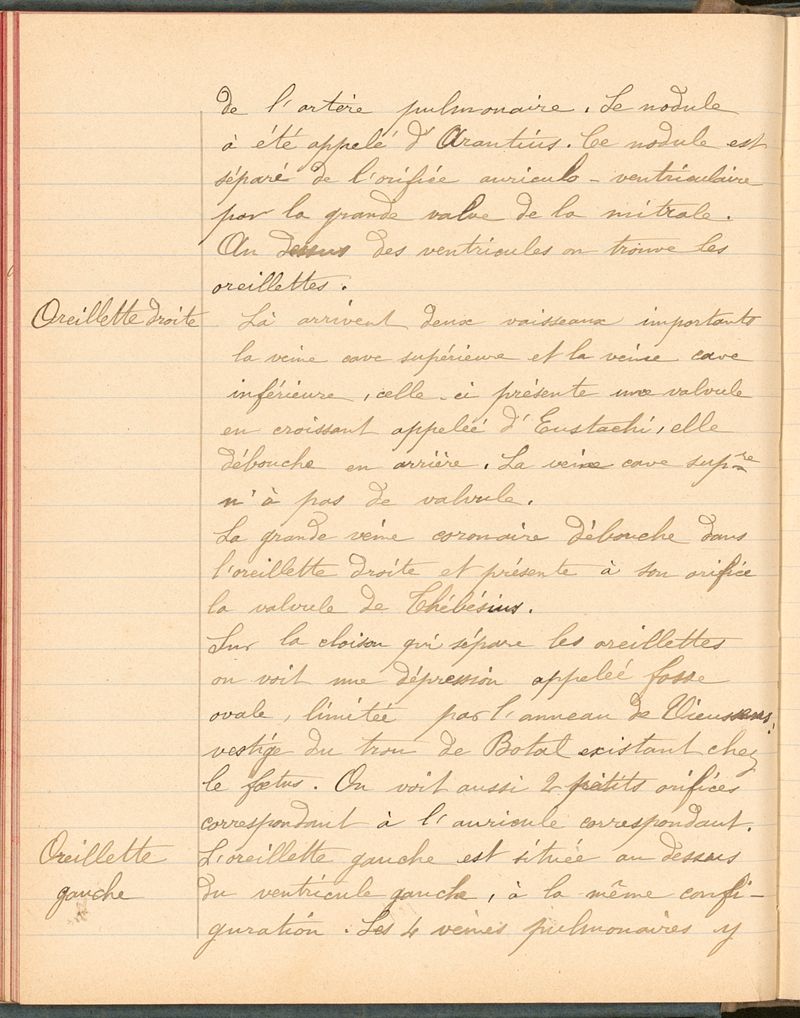 de l'artère pulmonaire. Le nodule
a été appelé d'Arantius. Ce nodule est
séparé de l'orifice auriculo-ventriculaire
par la grande valve de la mitrale.
Au dessus des ventricules on trouve les
oreillettes.
Oreillette droite
Là arrivent deux vaisseaux importants
la veine cave supérieure et la veine cave
inférieure, celle-ci présente une valvule
en croissant appeléé d'Eustachi, elle
débouche en arrière. La veine cave supre
n'à pas de valvule.
La grande veine coronaire débouche dans
l'oreillette droite et présente à son orifice
la valvule de Thébésius.
Sur la cloison qui sépare les oreillettes
on voit une dépression appeléé fosse
ovale, limitée par l'anneau de Vieussens,
vestige du trou de Botal existant chez
le fœtus. On voit aussi 2 petits orifices
correspondant à l'auricule correspondant.
Oreillette
gauche
L'oreillette gauche est située au dessus
du ventricule gauche, à la même confi-
guration. Les 4 veines pulmonaires y